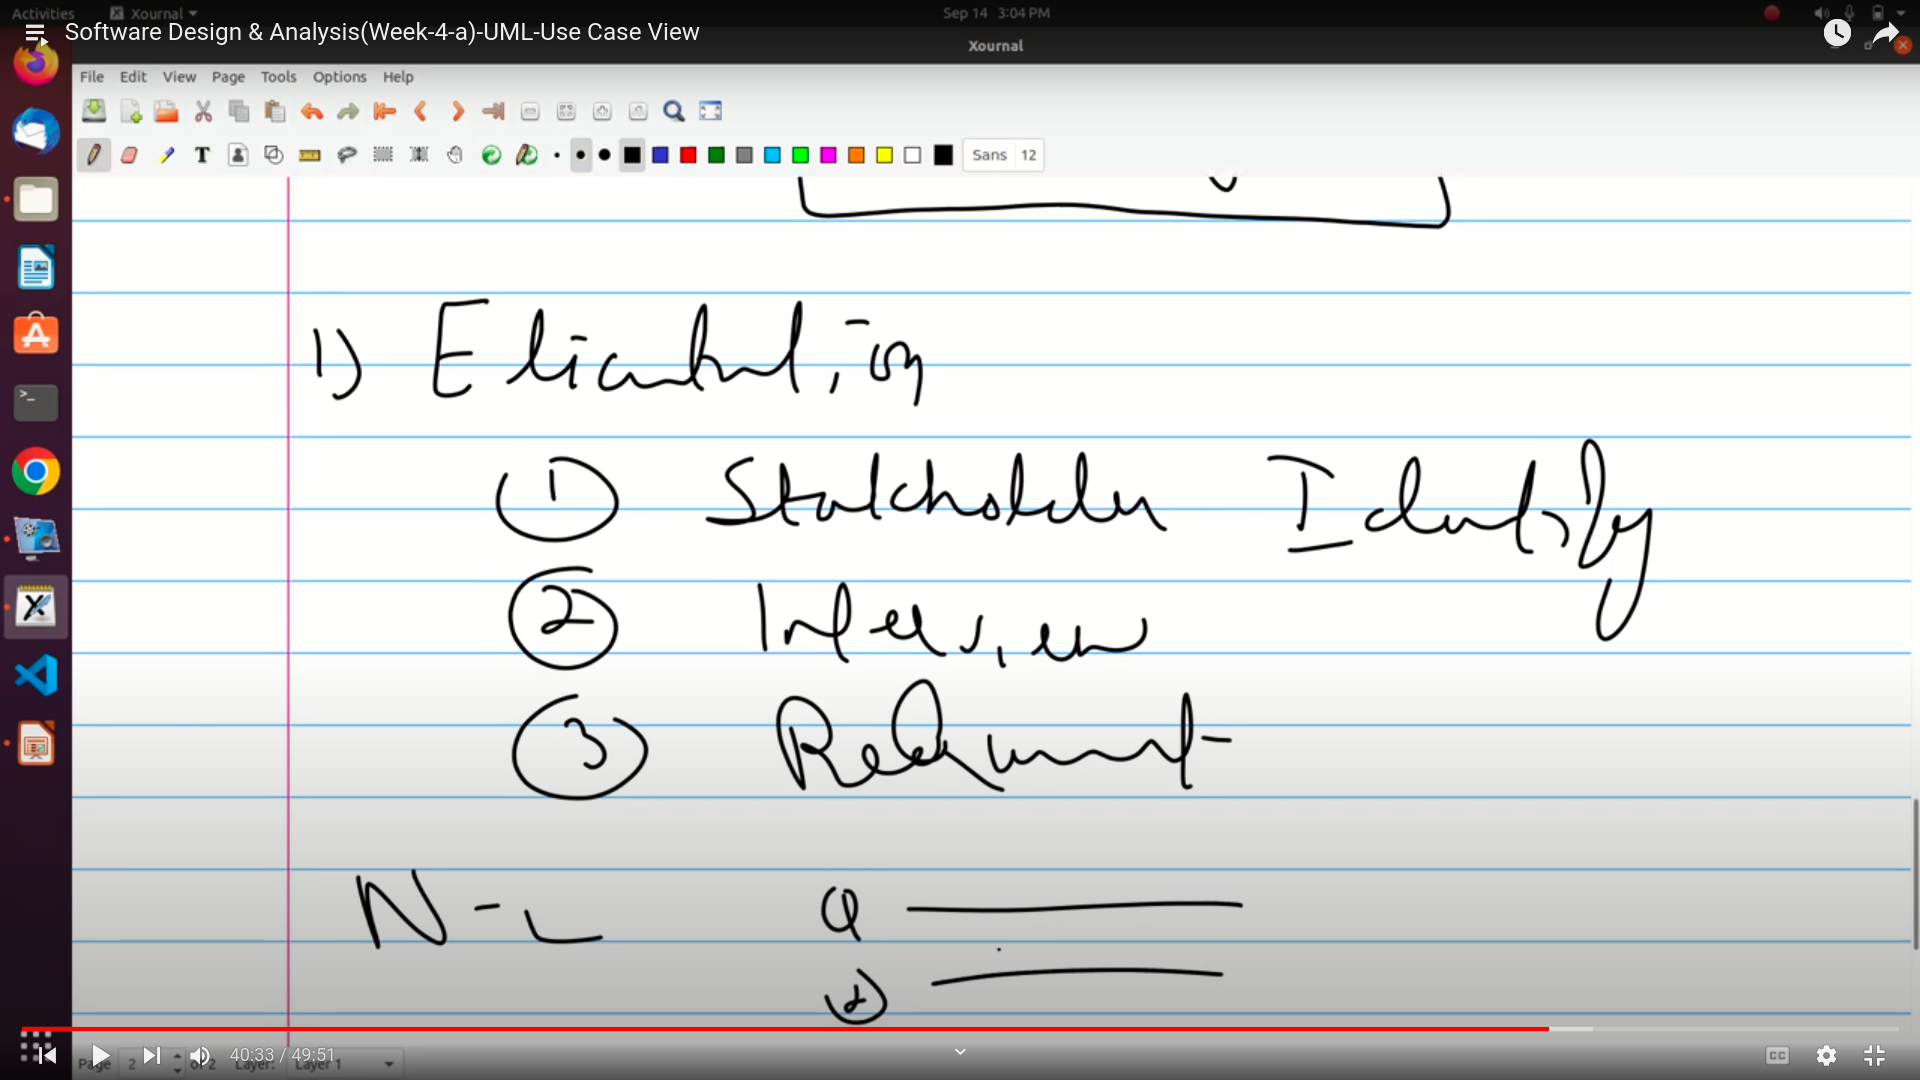 Activities Xournal Sep 14 3:04 PM
Software Design & Analysis(Week-4-a)-UML-Use Case View
Xournal
File Edit View Page Tools Options Help
Sans 12
1) Elicatation
1 Stakeholder Identify
2 Interview
3 ReQument
N-L
2
40:33 / 49:51
Page 2 of 2 Layer: Layer 1
CC